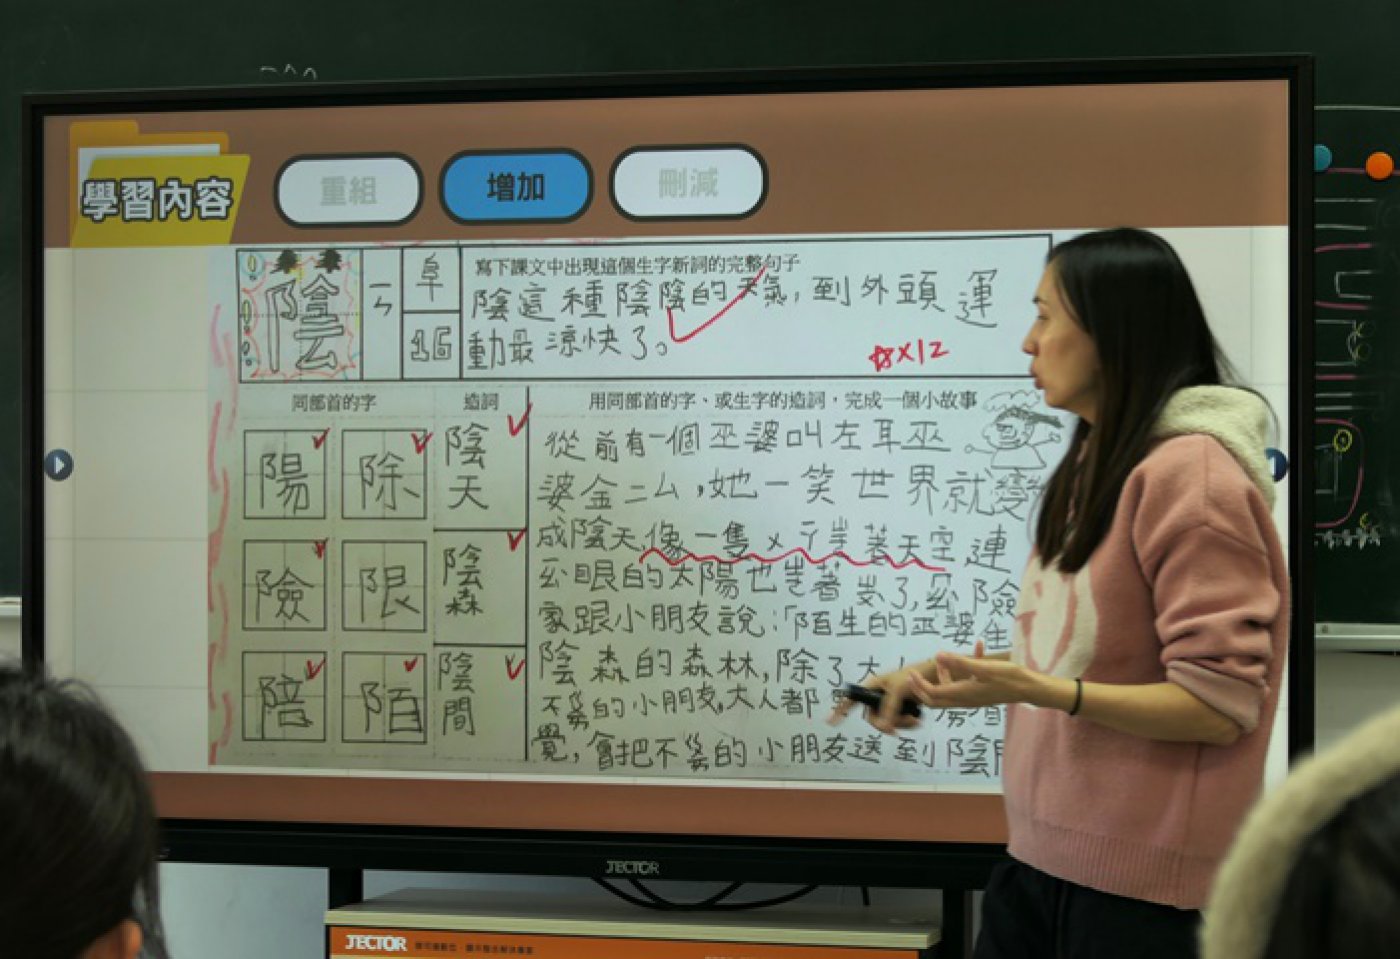 學習內容
重組
增加
刪減
陰
ㄧㄣ
阜
16
寫下課文中出現這個生字新詞的完整句子
陰這種陰陰的天氣,到外頭運
動最涼快了。
☆×12
同部首的字
造詞
用同部首的字、或生字的造詞,完成一個小故事
陽
除
陰天
險
限
陰森
陪
陌
陰間
從前有一個巫婆叫左耳巫
婆金二ㄙ,她一笑世界就變
成陰天,像一隻
著天空連
眼的太陽也
著
了,
險
家跟小朋友說:「陌生的巫婆住
陰森的森林,除了大
不
的小朋友,大人都
覺,會把不
的小朋友送到陰
JECTOR
JECTOR